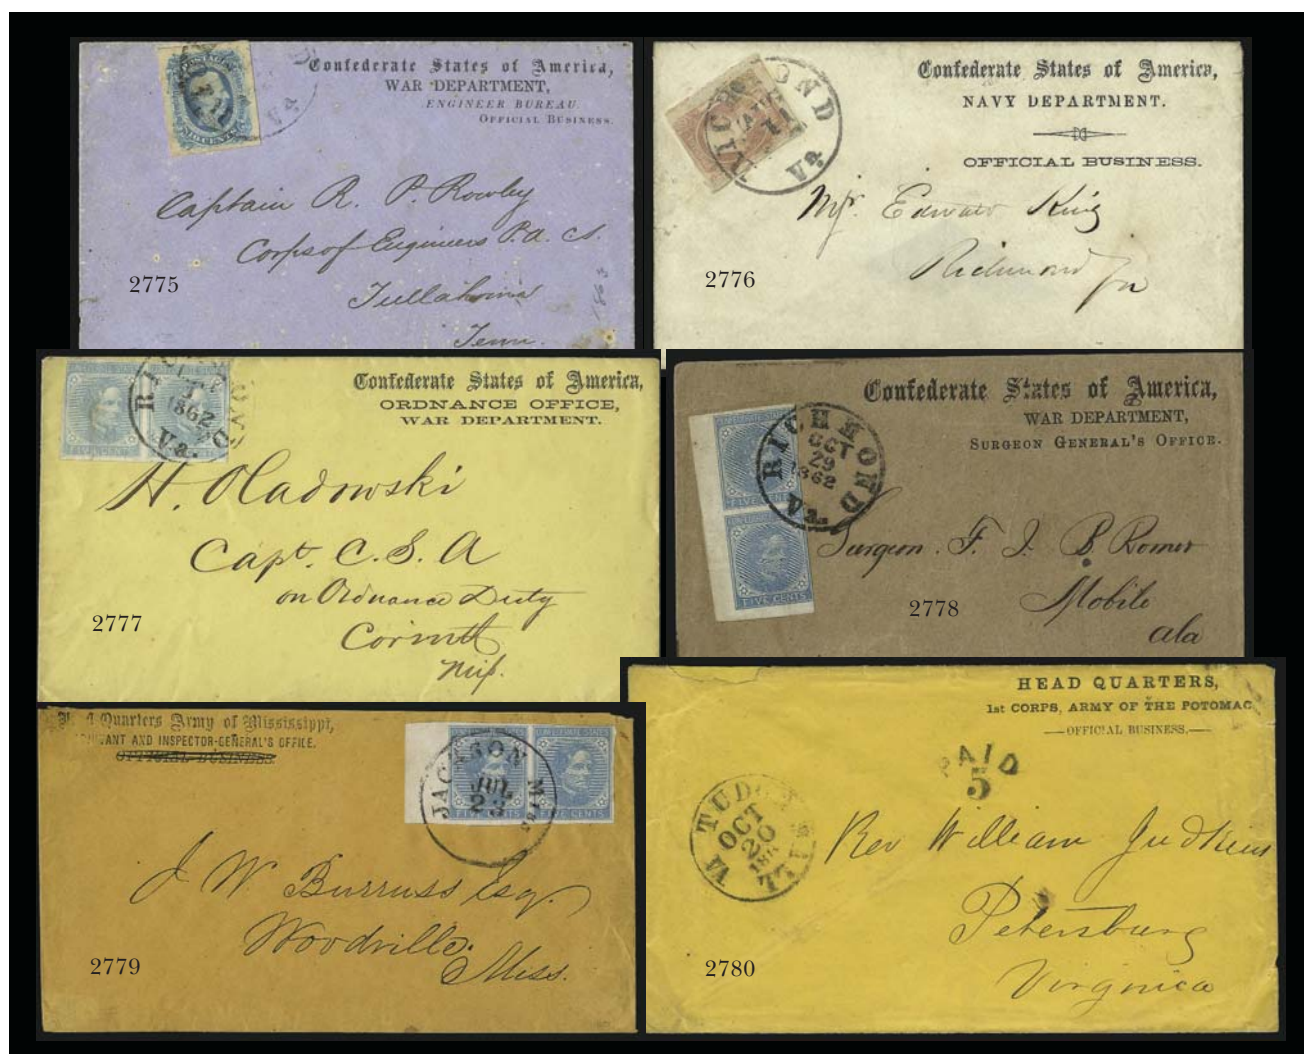 Confederate States of America,
WAR DEPARTMENT,
ENGINEER BUREAU.
OFFICIAL BUSINESS.
TEN CENTS
Va
Captain R. P. Rowley
Corps of Engineers P. A. C. S.
Tullahoma
Tenn.
1863
2775
Confederate States of America,
NAVY DEPARTMENT.
OFFICIAL BUSINESS.
RICHMOND
11
Va
Mjr. Edward King
Richmond
2776
Confederate States of America,
ORDNANCE OFFICE,
WAR DEPARTMENT.
FIVE CENTS
1862
Va.
H. Oladowski
Capt. C. S. A
on Ordnance Duty
Corinth
Mis.
2777
Confederate States of America,
WAR DEPARTMENT,
SURGEON GENERAL'S OFFICE.
RICHMOND
OCT
29
1862
Va.
FIVE CENTS
FIVE CENTS
Surgeon. F. J. B. Romer
Mobile
ala
2778
Quarters Army of Mississippi,
AND INSPECTOR-GENERAL'S OFFICE.
OFFICIAL BUSINESS.
JACKSON
JUL
23
Miss
FIVE CENTS FIVE CENTS
J. W. Burruss Esq.
Woodville.
Miss.
2779
HEAD QUARTERS,
1st CORPS, ARMY OF THE POTOMAC
—OFFICIAL BUSINESS,—
PAID
5
TUDOR
OCT
20
186
VA
Rev William Judkins
Petersburg
Virginia
2780